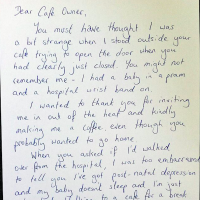 Dear Cafe Owner,
You must have thought I was
a bit strange when I stood outside your
cafe trying to open the door when you
had clearly just closed. You might not
remember me - I had a baby in a pram
and a hospital wrist band on.
I wanted to thank you for inviting
me in out of the heat and kindly
making me a coffee, even though you
probably wanted to go home.
When you asked if I'd walked
over from the hospital, I was too embarrassed
to tell you I've got post-natal depression
and my baby doesnt sleep and I'm just
to a cafe for a break